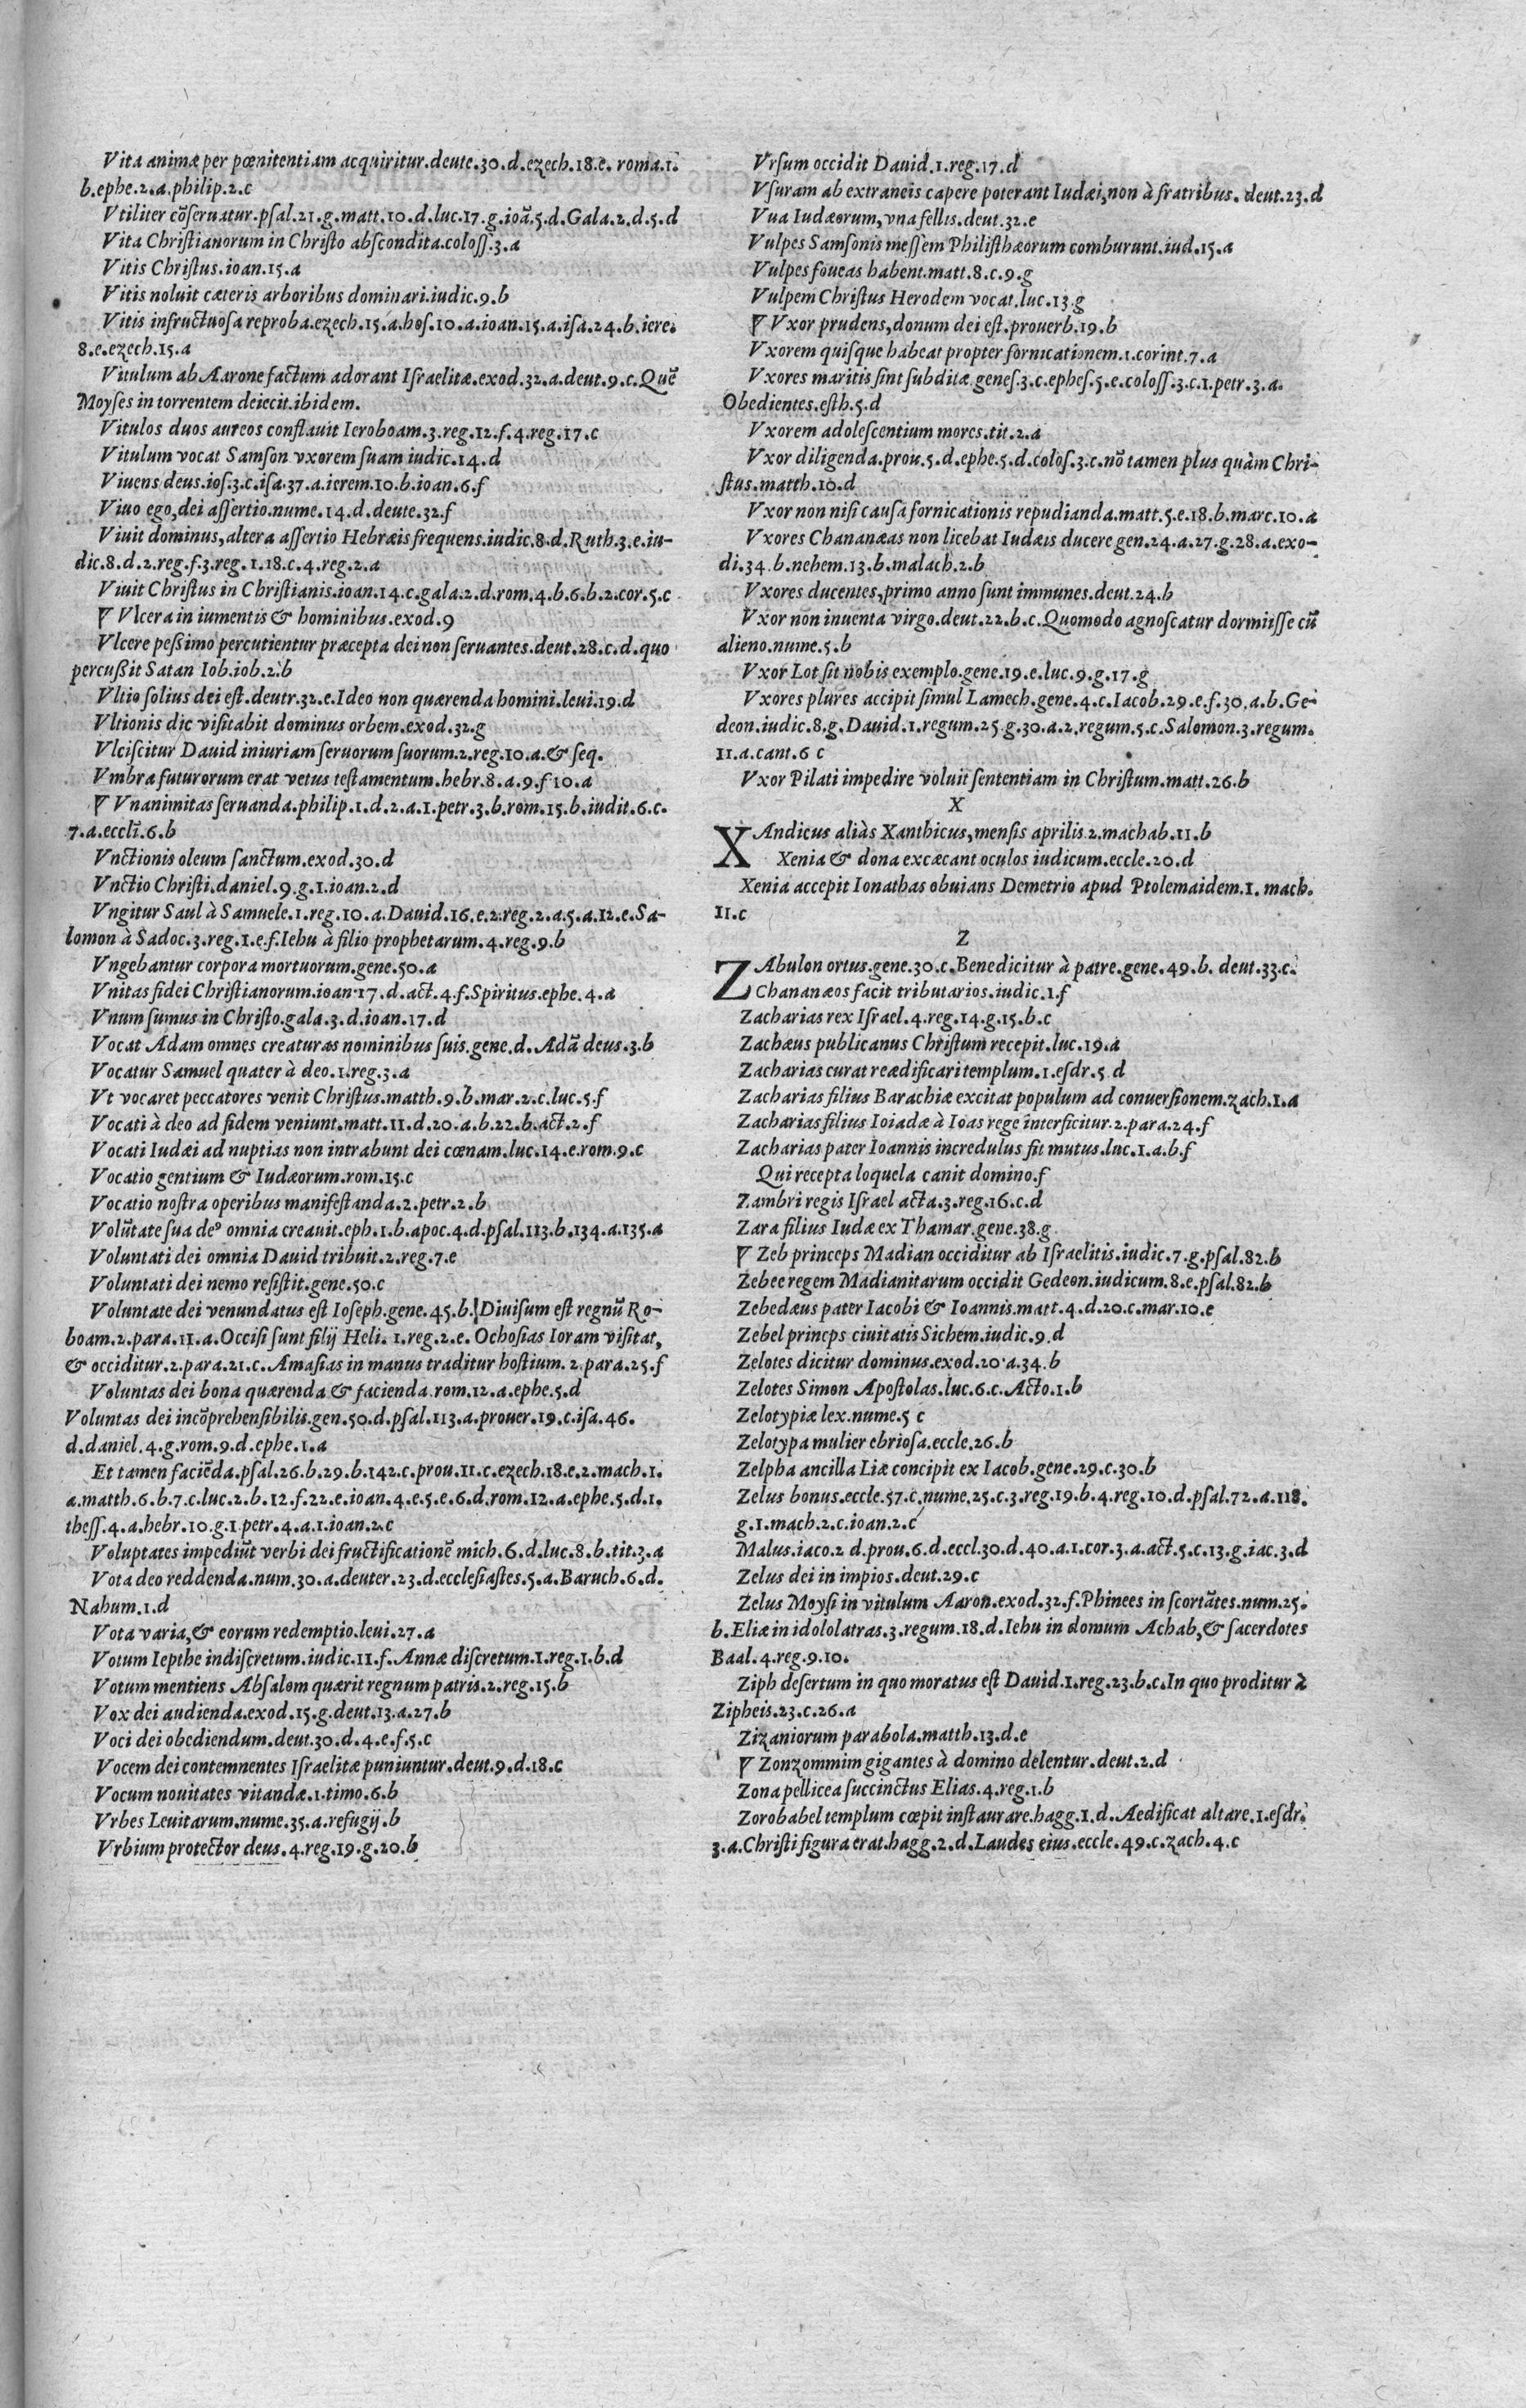 Vita animæ per pœnitentiam acquiritur.deute.30.d.ezech.18.e. roma.1.
b.ephe.2.a.philip.2.c
Vtiliter cõſeruatur.pſal.21.g.matt.10.d.luc.17.g.ioã.5.d.Gala.2.d.5.d
Vita Chriſtianorum in Chriſto abſcondita.coloſſ.3.a
Vitis Chriſtus.ioan.15.a
Vitis noluit cæteris arboribus dominari.iudic.9.b
Vitis infructuoſa reproba.ezech.15.a.hoſ.10.a.ioan.15.a.iſa.24.b.iere.
8.e.ezech.15.a
Vitulum ab Aarone factum adorant Iſraelitæ.exod.32.a.deut.9.c.Quẽ
Moyſes in torrentem deiecit.ibidem.
Vitulos duos aureos conflauit Ieroboam.3.reg.12.f.4.reg.17.c
Vitulum vocat Samſon vxorem ſuam iudic.14.d
Viuens deus.ioſ.3.c.iſa.37.a.ierem.10.b.ioan.6.f
Viuo ego,dei aſſertio.nume.14.d.deute.32.f
Viuit dominus,altera aſſertio Hebræis frequens.iudic.8.d.Ruth.3.e.iu-
dic.8.d.2.reg.f.3.reg.1.18.c.4.reg.2.a
Viuit Chriſtus in Chriſtianis.ioan.14.c.gala.2.d.rom.4.b.6.b.2.cor.5.c
¶ Vlcera in iumentis & hominibus.exod.9
Vlcere peßimo percutientur præcepta dei non ſeruantes.deut.28.c.d.quo
percußit Satan Iob.iob.2.b
Vltio ſolius dei eſt.deutr.32.e.Ideo non quærenda homini.leui.19.d
Vltionis die viſitabit dominus orbem.exod.32.g
Vlciſcitur Dauid iniuriam ſeruorum ſuorum.2.reg.10.a.& ſeq.
Vmbra futurorum erat vetus teſtamentum.hebr.8.a.9.f 10.a
¶ Vnanimitas ſeruanda.philip.1.d.2.a.1.petr.3.b.rom.15.b.iudit.6.c.
7.a.eccli.6.b
Vnctionis oleum ſanctum.exod.30.d
Vnctio Chriſti.daniel.9.g.1.ioan.2.d
Vngitur Saul à Samuele.1.reg.10.a.Dauid.16.e.2.reg.2.a.5.a.12.e.Sa-
lomon à Sadoc.3.reg.1.e.f.Iehu à filio prophetarum.4.reg.9.b
Vngebantur corpora mortuorum.gene.50.a
Vnitas fidei Chriſtianorum.ioan.17.d.act.4.f.Spiritus.ephe.4.a
Vnum ſumus in Chriſto.gala.3.d.ioan.17.d
Vocat Adam omnes creaturas nominibus ſuis.gene.d.Adã deus.3.b
Vocatur Samuel quater à deo.1.reg.3.a
Vt vocaret peccatores venit Chriſtus.matth.9.b.mar.2.c.luc.5.f
Vocati à deo ad fidem veniunt.matt.11.d.20.a.b.22.b.act.2.f
Vocati Iudæi ad nuptias non intrabunt dei cœnam.luc.14.e.rom.9.c
Vocatio gentium & Iudæorum.rom.15.c
Vocatio noſtra operibus manifeſtanda.2.petr.2.b
Volũtate ſua deꝰ omnia creauit.eph.1.b.apoc.4.d.pſal.113.b.134.a.135.a
Voluntati dei omnia Dauid tribuit.2.reg.7.e
Voluntati dei nemo reſiſtit.gene.50.c
Voluntate dei venundatus eſt Ioſeph.gene.45.b.Diuiſum eſt regnũ Ro-
boam.2.para.11.a.Occiſi ſunt filij Heli. 1.reg.2.e. Ochoſias Ioram viſitat,
& occiditur.2.para.21.c.Amaſias in manus traditur hoſtium.2.para.25.f
Voluntas dei bona quærenda & facienda.rom.12.a.ephe.5.d
Voluntas dei incõprehenſibilis.gen.50.d.pſal.113.a.prouer.19.c.iſa.46.
d.daniel.4.g.rom.9.d.ephe.1.a
Et tamen faciẽda.pſal.26.b.29.b.142.c.prou.11.c.ezech.18.e.2.mach.1.
a.matth.6.b.7.c.luc.2.b.12.f.22.e.ioan.4.e.5.e.6.d.rom.12.a.ephe.5.d.1.
theſſ.4.a.hebr.10.g.1.petr.4.a.1.ioan.2.c
Voluptates impediũt verbi dei fructificationẽ mich.6.d.luc.8.b.tit.3.a
Vota deo reddenda.num.30.a.deuter.23.d.eccleſiaſtes.5.a.Baruch.6.d.
Nahum.1.d
Vota varia,& eorum redemptio.leui.27.a
Votum Iepthe indiſcretum.iudic.11.f.Annæ diſcretum.1.reg.1.b.d
Votum mentiens Abſalom quærit regnum patris.2.reg.15.b
Vox dei audienda.exod.15.g.deut.13.a.27.b
Voci dei obediendum.deut.30.d.4.e.f.5.c
Vocem dei contemnentes Iſraelitæ puniuntur.deut.9.d.18.c
Vocum nouitates vitandæ.1.timo.6.b
Vrbes Leuitarum.nume.35.a.refugij.b
Vrbium protector deus.4.reg.19.g.20.b
Vrſum occidit Dauid.1.reg.17.d
Vſuram ab extraneis capere poterant Iudæi,non à fratribus. deut.23.d
Vua Iudæorum,vna fellis.deut.32.e
Vulpes Samſonis meſſem Philiſthæorum comburunt.iud.15.a
Vulpes foueas habent.matt.8.c.9.g
Vulpem Chriſtus Herodem vocat.luc.13.g
¶ Vxor prudens,donum dei eſt.prouerb.19.b
Vxorem quiſque habeat propter fornicationem.1.corint.7.a
Vxores maritis ſint ſubditæ.geneſ.3.c.epheſ.5.e.coloſſ.3.c.1.petr.3.a.
Obedientes.eſth.5.d
Vxorem adoleſcentium mores.tit.2.a
Vxor diligenda.prou.5.d.ephe.5.d.coloſ.3.c.nõ tamen plus quàm Chri-
ſtus.matth.10.d
Vxor non niſi cauſa fornicationis repudianda.matt.5.e.18.b.marc.10.a
Vxores Chananæas non licebat Iudæis ducere gen.24.a.27.g.28.a.exo-
di.34.b.nehem.13.b.malach.2.b
Vxores ducentes,primo anno ſunt immunes.deut.24.b
Vxor non inuenta virgo.deut.22.b.c.Quomodo agnoſcatur dormiiſſe cũ
alieno.nume.5.b
Vxor Lot ſit nobis exemplo.gene.19.e.luc.9.g.17.g
Vxores plures accipit ſimul Lamech.gene.4.c.Iacob.29.e.f.30.a.b.Ge-
deon.iudic.8.g.Dauid.1.regum.25.g.30.a.2.regum.5.c.Salomon.3.regum.
11.a.cant.6 c
Vxor Pilati impedire voluit ſententiam in Chriſtum.matt.26.b
X
XAndicus aliàs Xanthicus,menſis aprilis.2.machab.11.b
Xenia & dona excæcant oculos iudicum.eccle.20.d
Xenia accepit Ionathas obuians Demetrio apud Ptolemaidem.1. mach.
11.c
Z
ZAbulon ortus.gene.30.c.Benedicitur à patre.gene.49.b. deut.33.c.
Chananæos facit tributarios.iudic.1.f
Zacharias rex Iſrael.4.reg.14.g.15.b.c
Zachæus publicanus Chriſtum recepit.luc.19.a
Zacharias curat reædificari templum.1.eſdr.5 d
Zacharias filius Barachiæ excitat populum ad conuerſionem.zach.1.a
Zacharias filius Ioiadæ à Ioas rege interficitur.2.para.24.f
Zacharias pater Ioannis incredulus fit mutus.luc.1.a.b.f
Qui recepta loquela canit domino.f
Zambri regis Iſrael acta.3.reg.16.c.d
Zara filius Iudæ ex Thamar.gene.38.g
¶ Zeb princeps Madian occiditur ab Iſraelitis.iudic.7.g.pſal.82.b
Zebee regem Madianitarum occidit Gedeon.iudicum.8.e.pſal.82.b
Zebedæus pater Iacobi & Ioannis.matt.4.d.20.c.mar.10.e
Zebel princps ciuitatis Sichem.iudic.9.d
Zelotes dicitur dominus.exod.20.a.34.b
Zelotes Simon Apoſtolas.luc.6.c.Acto.1.b
Zelotypiæ lex.nume.5 c
Zelotypa mulier ebrioſa.eccle.26.b
Zelpha ancilla Liæ concipit ex Iacob.gene.29.c.30.b
Zelus bonus.eccle.57.c.nume.25.c.3.reg.19.b.4.reg.10.d.pſal.72.a.118.
g.1.mach.2.c.ioan.2.c
Malus.iaco.2 d.prou.6.d.eccl.30.d.40.a.1.cor.3.a.act.5.c.13.g.iac.3.d
Zelus dei in impios.deut.29.c
Zelus Moyſi in vitulum Aaron.exod.32.f.Phinees in ſcortãtes.num.25.
b.Eliæ in idololatras.3.regum.18.d.Iehu in domum Achab,& ſacerdotes
Baal.4.reg.9.10.
Ziph deſertum in quo moratus eſt Dauid.1.reg.23.b.c.In quo proditur à
Zipheis.23.c.26.a
Zizaniorum parabola.matth.13.d.e
¶ Zonzommim gigantes à domino delentur.deut.2.d
Zona pellicea ſuccinctus Elias.4.reg.1.b
Zorobabel templum cœpit inſtaurare.hagg.1.d.Aedificat altare.1.eſdr.
3.a.Chriſti figura erat.hagg.2.d.Laudes eius.eccle.49.c.zach.4.c